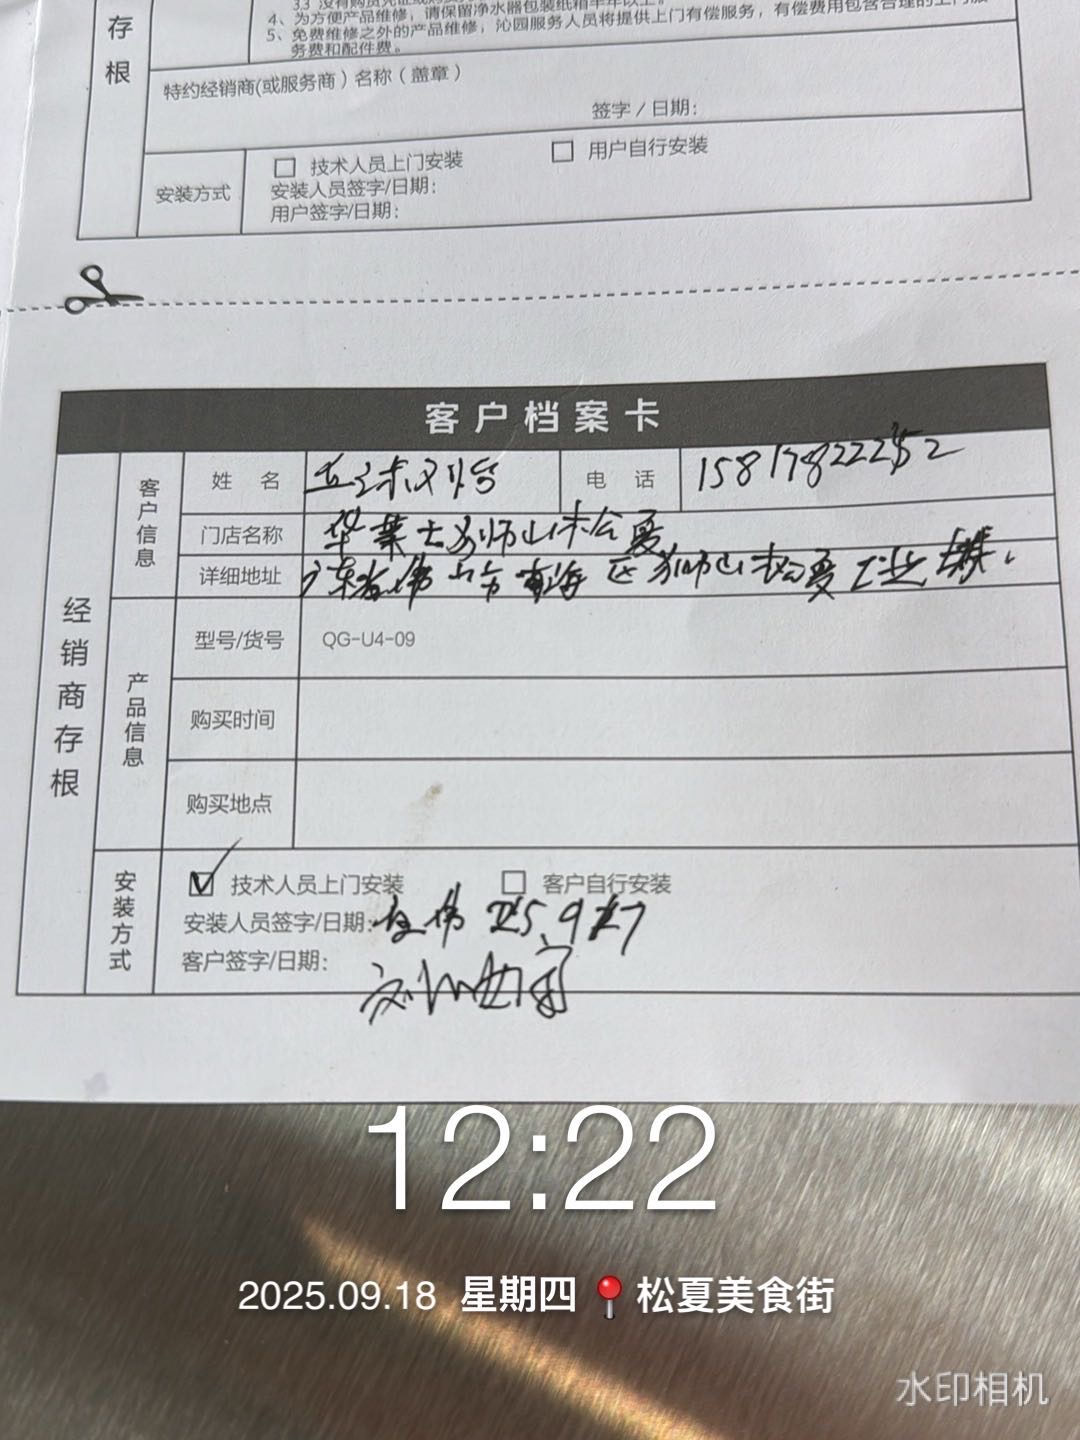 存根
4、为方便产品维修，请保留净水器包装纸箱半年以上。
5、免费维修之外的产品维修，沁园服务人员将提供上门有偿服务，有偿费用包含合理的上门服
务费和配件费。
特约经销商(或服务商)名称（盖章）
签字/日期:
安装方式
技术人员上门安装
用户自行安装
安装人员签字/日期:
用户签字/日期:
客户档案卡
经销商存根
客户信息
姓 名
电 话 158178222
门店名称 华莱士 狮山松夏
详细地址 广东省佛山市南海区狮山松夏工业
产品信息
型号/货号 QG-U4-09
购买时间
购买地点
安装方式
技术人员上门安装
客户自行安装
安装人员签字/日期:
客户签字/日期:
12:22
2025.09.18 星期四 松夏美食街
水印相机